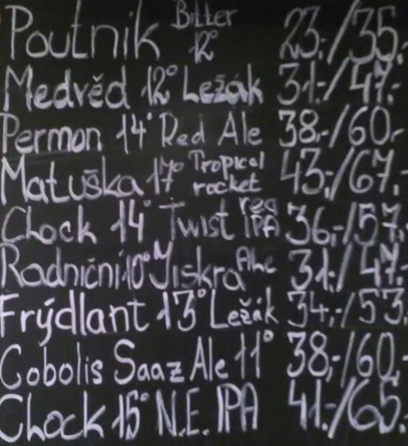 Poutník Bitter 12° 23,-/35,-
Medvěd 12° Ležák 31,-/47,-
Permon 14° Red Ale 38,-/60,-
Matuška 17° Tropical rocket 43,-/67,-
Clock 14° Twist red IPA 36,-/57,-
Radniční 10° Jiskra Ale 31,-/47,-
Frýdlant 13° Ležák 34,-/53,-
Cobolis Saaz Ale 11° 38,-/60,-
Clock 15° N.E. IPA 41,-/65,-